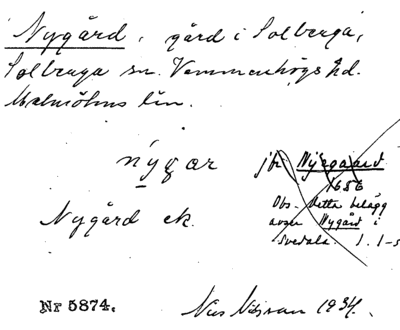 Nygård, gård i Solberga,
Solberga sn. Vemmenhögs hd.
Malmöhus län.
nygar
jfr Nygaard
1686
Obs. Detta belägg
avser Nygård i
Svedala. 1.1-5
Nygård ek.
Nr 5874.
Nils 1934.